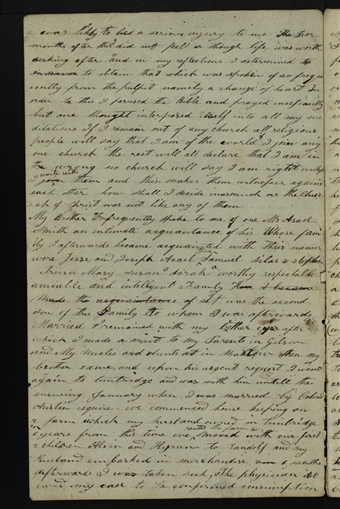 ever likely to be a serious injury to me The few
months after this did not feel as though life was worth
seeking after and in my reflections I determined to
endeavor to obtain that which was spoken of so freq
uently from the pulpit namely a change of heart In
order to this I perused the Bible and prayed incessantly
but one thought interposed itself into all my me
ditations If I remain out of any church all religious
people will say that I am of the world I join any
one church the rest will all declare that I am in
the wrong no church will say I am right unless I
unite with them and this makes them witnesses against
each other how shall I decide inasmuch as the Church
of Christ was not like any of them
My Brother frequently spoke to me of one Mr Asael
Smith an intimate acquaintance of his Whose fam
ily I afterwards became acquainted with their names
were Jesse and Joseph Asael Samuel Silas & Stephen
Mary Susan & Sarah a worthy respectable
amiable and intelligent Family
the acquaintance of was the second
son of this Family to whom I was afterwards
Married I remained with my Brother after
which I made a visit to my Parents in Gilsum
and my Uncles and Aunts at in Marlow then my
brother came and upon his urgent request I went
again to tunbridge and was with him untill the
ensuing January when I was married by
Austin esquire we commenced house keeping on
a farm which my husband owned in tunbridge
6 years from this time we moved with our first
2 children Alvin and Hyrum to Randolf and my
husband embarked in merchandise 6 months
afterwards I was taken sick, the physician
my case to a confirmed consumption